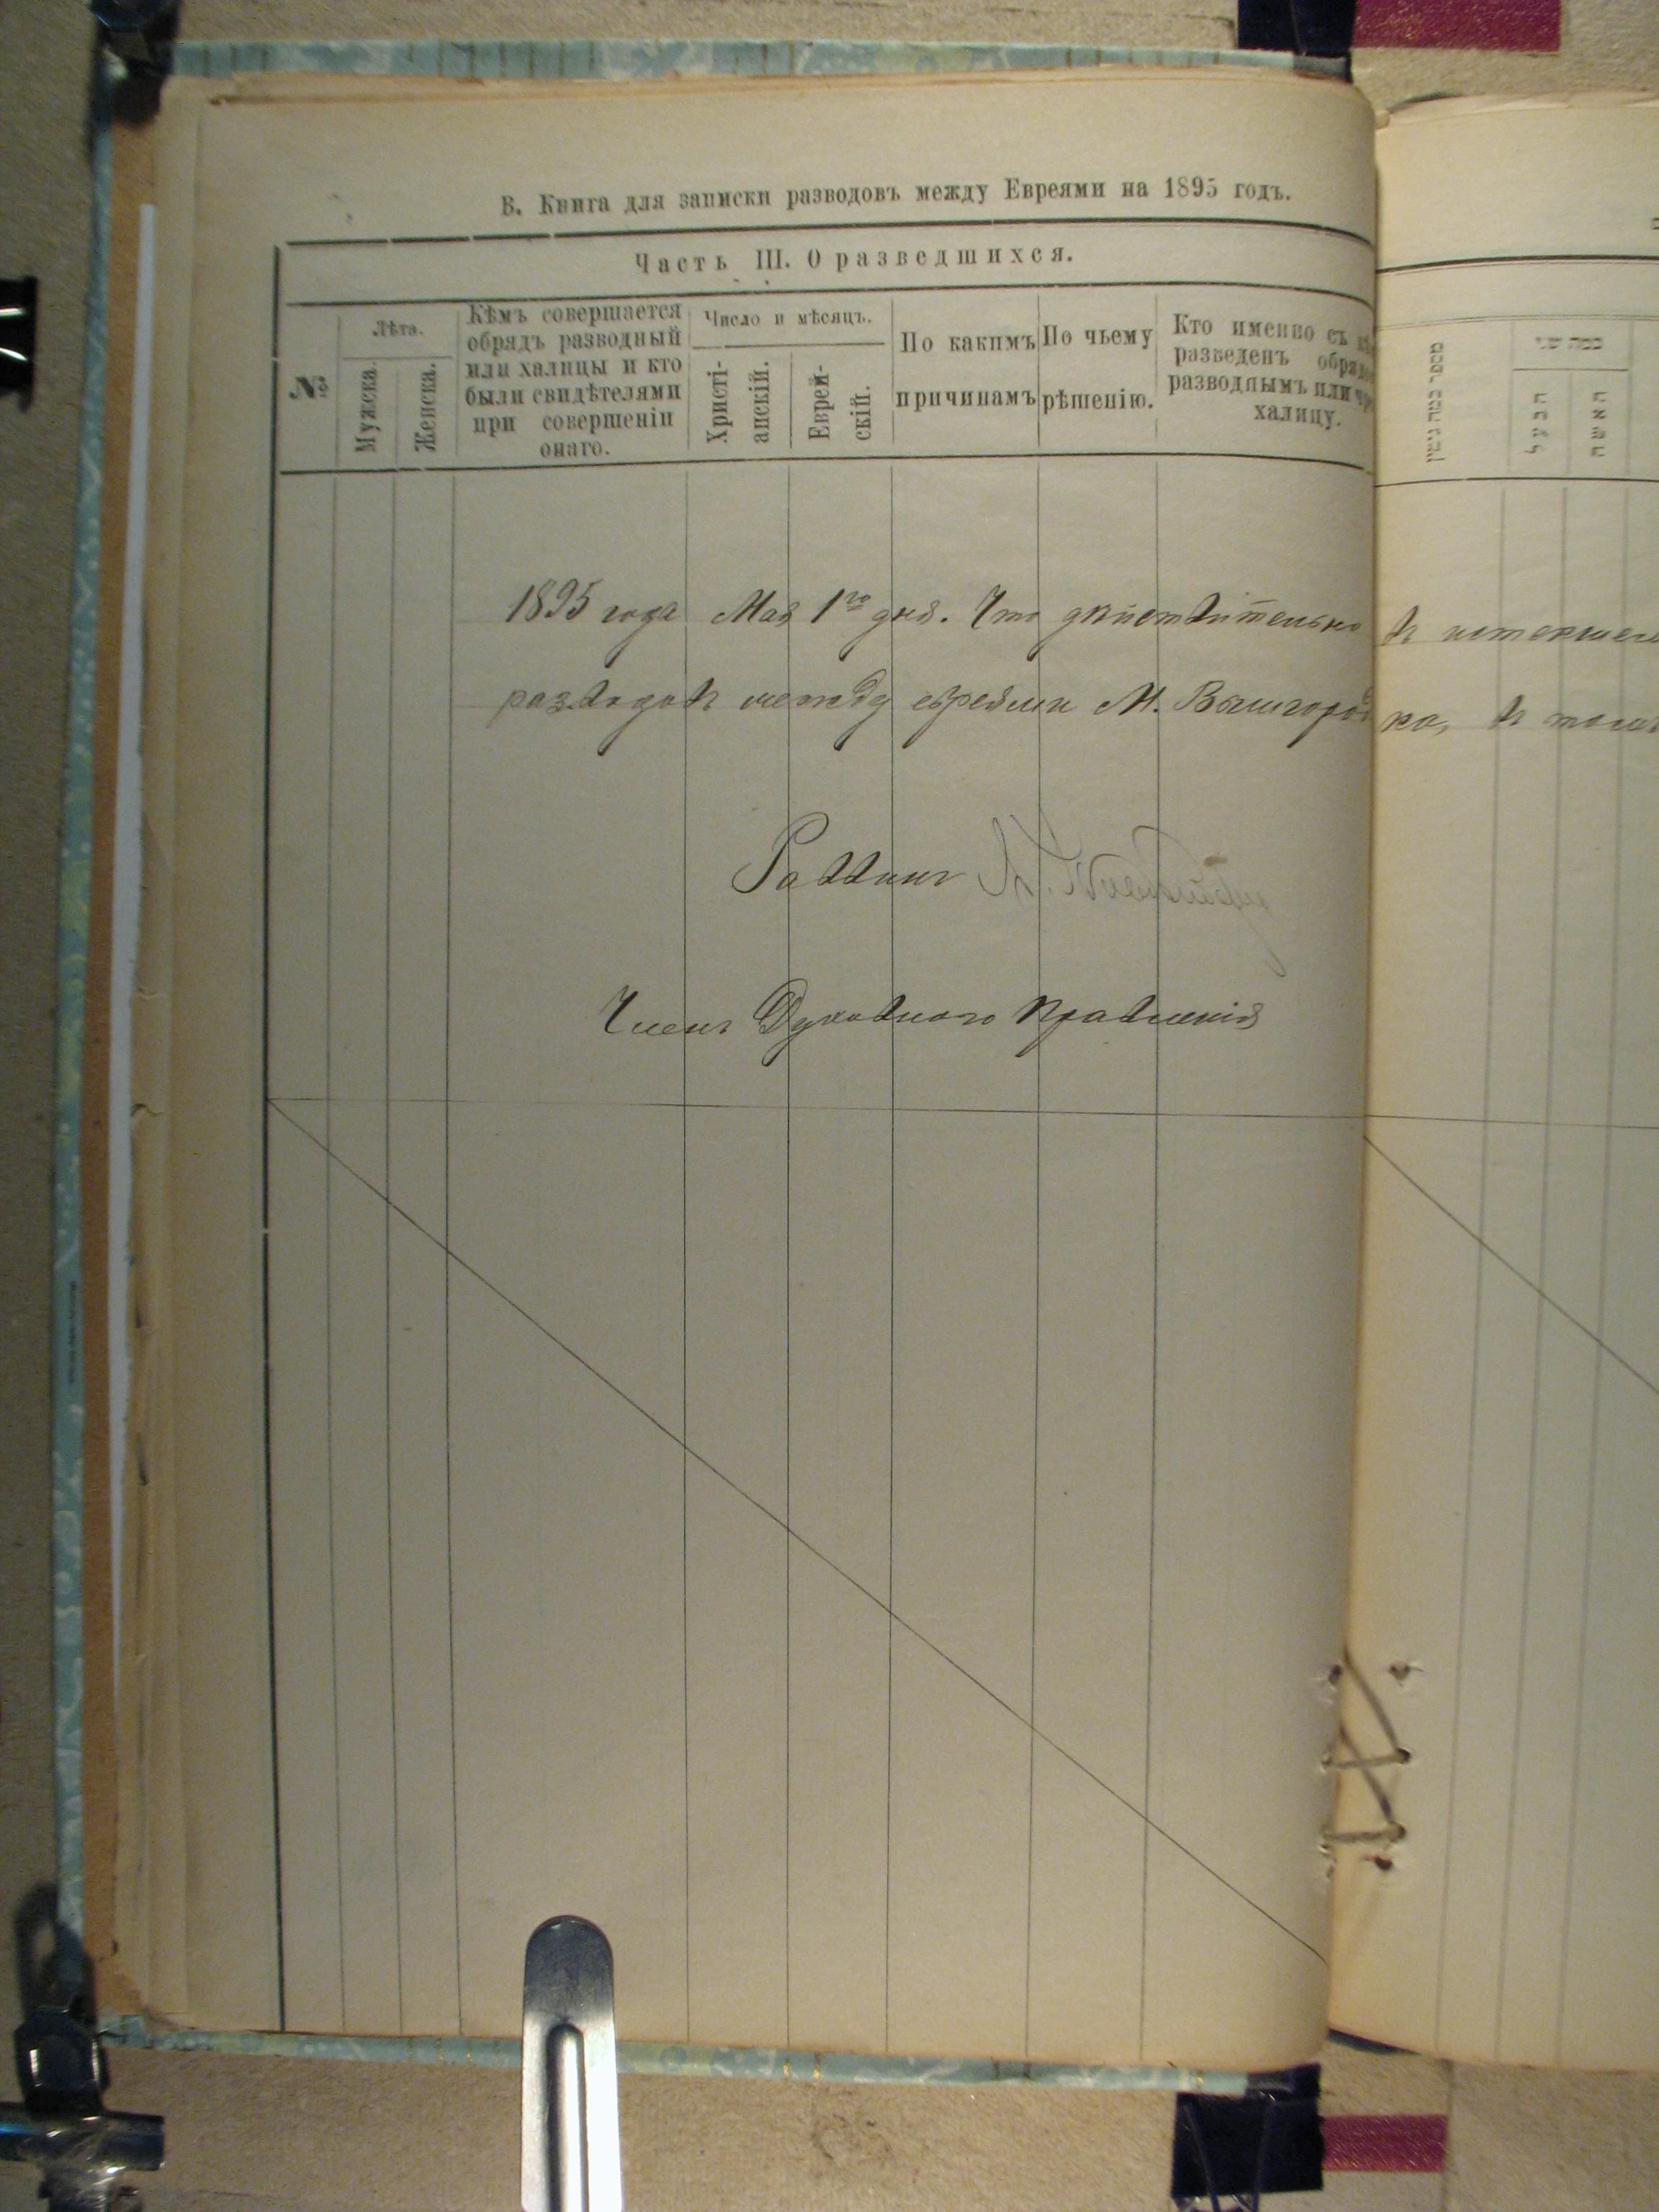 В. Книга для записки разводовъ между Евреями на 1895 годъ.
Часть III. О разведшихся.
№
Лѣта.
Мужска.
Женска.
Кѣмъ совершается
обрядъ разводный
или халицы и кто
были свидѣтелями
при совершеніи
онаго.
Число и мѣсяцъ.
Христі-
анскій.
Еврей-
скій.
По какимъ
причинамъ
По чьему
рѣшенію.
Кто именно съ
разведенъ
разводнымъ или
халицу.
מספר כמה גיטין
כמה שני
הבעל
האשה
1895 года Мая 1го дня. Что дѣйствительно въ истекшем
разводовъ между евреями М. Вышгородка, въ томъ
Раввинъ
Членъ Духовного Правленія